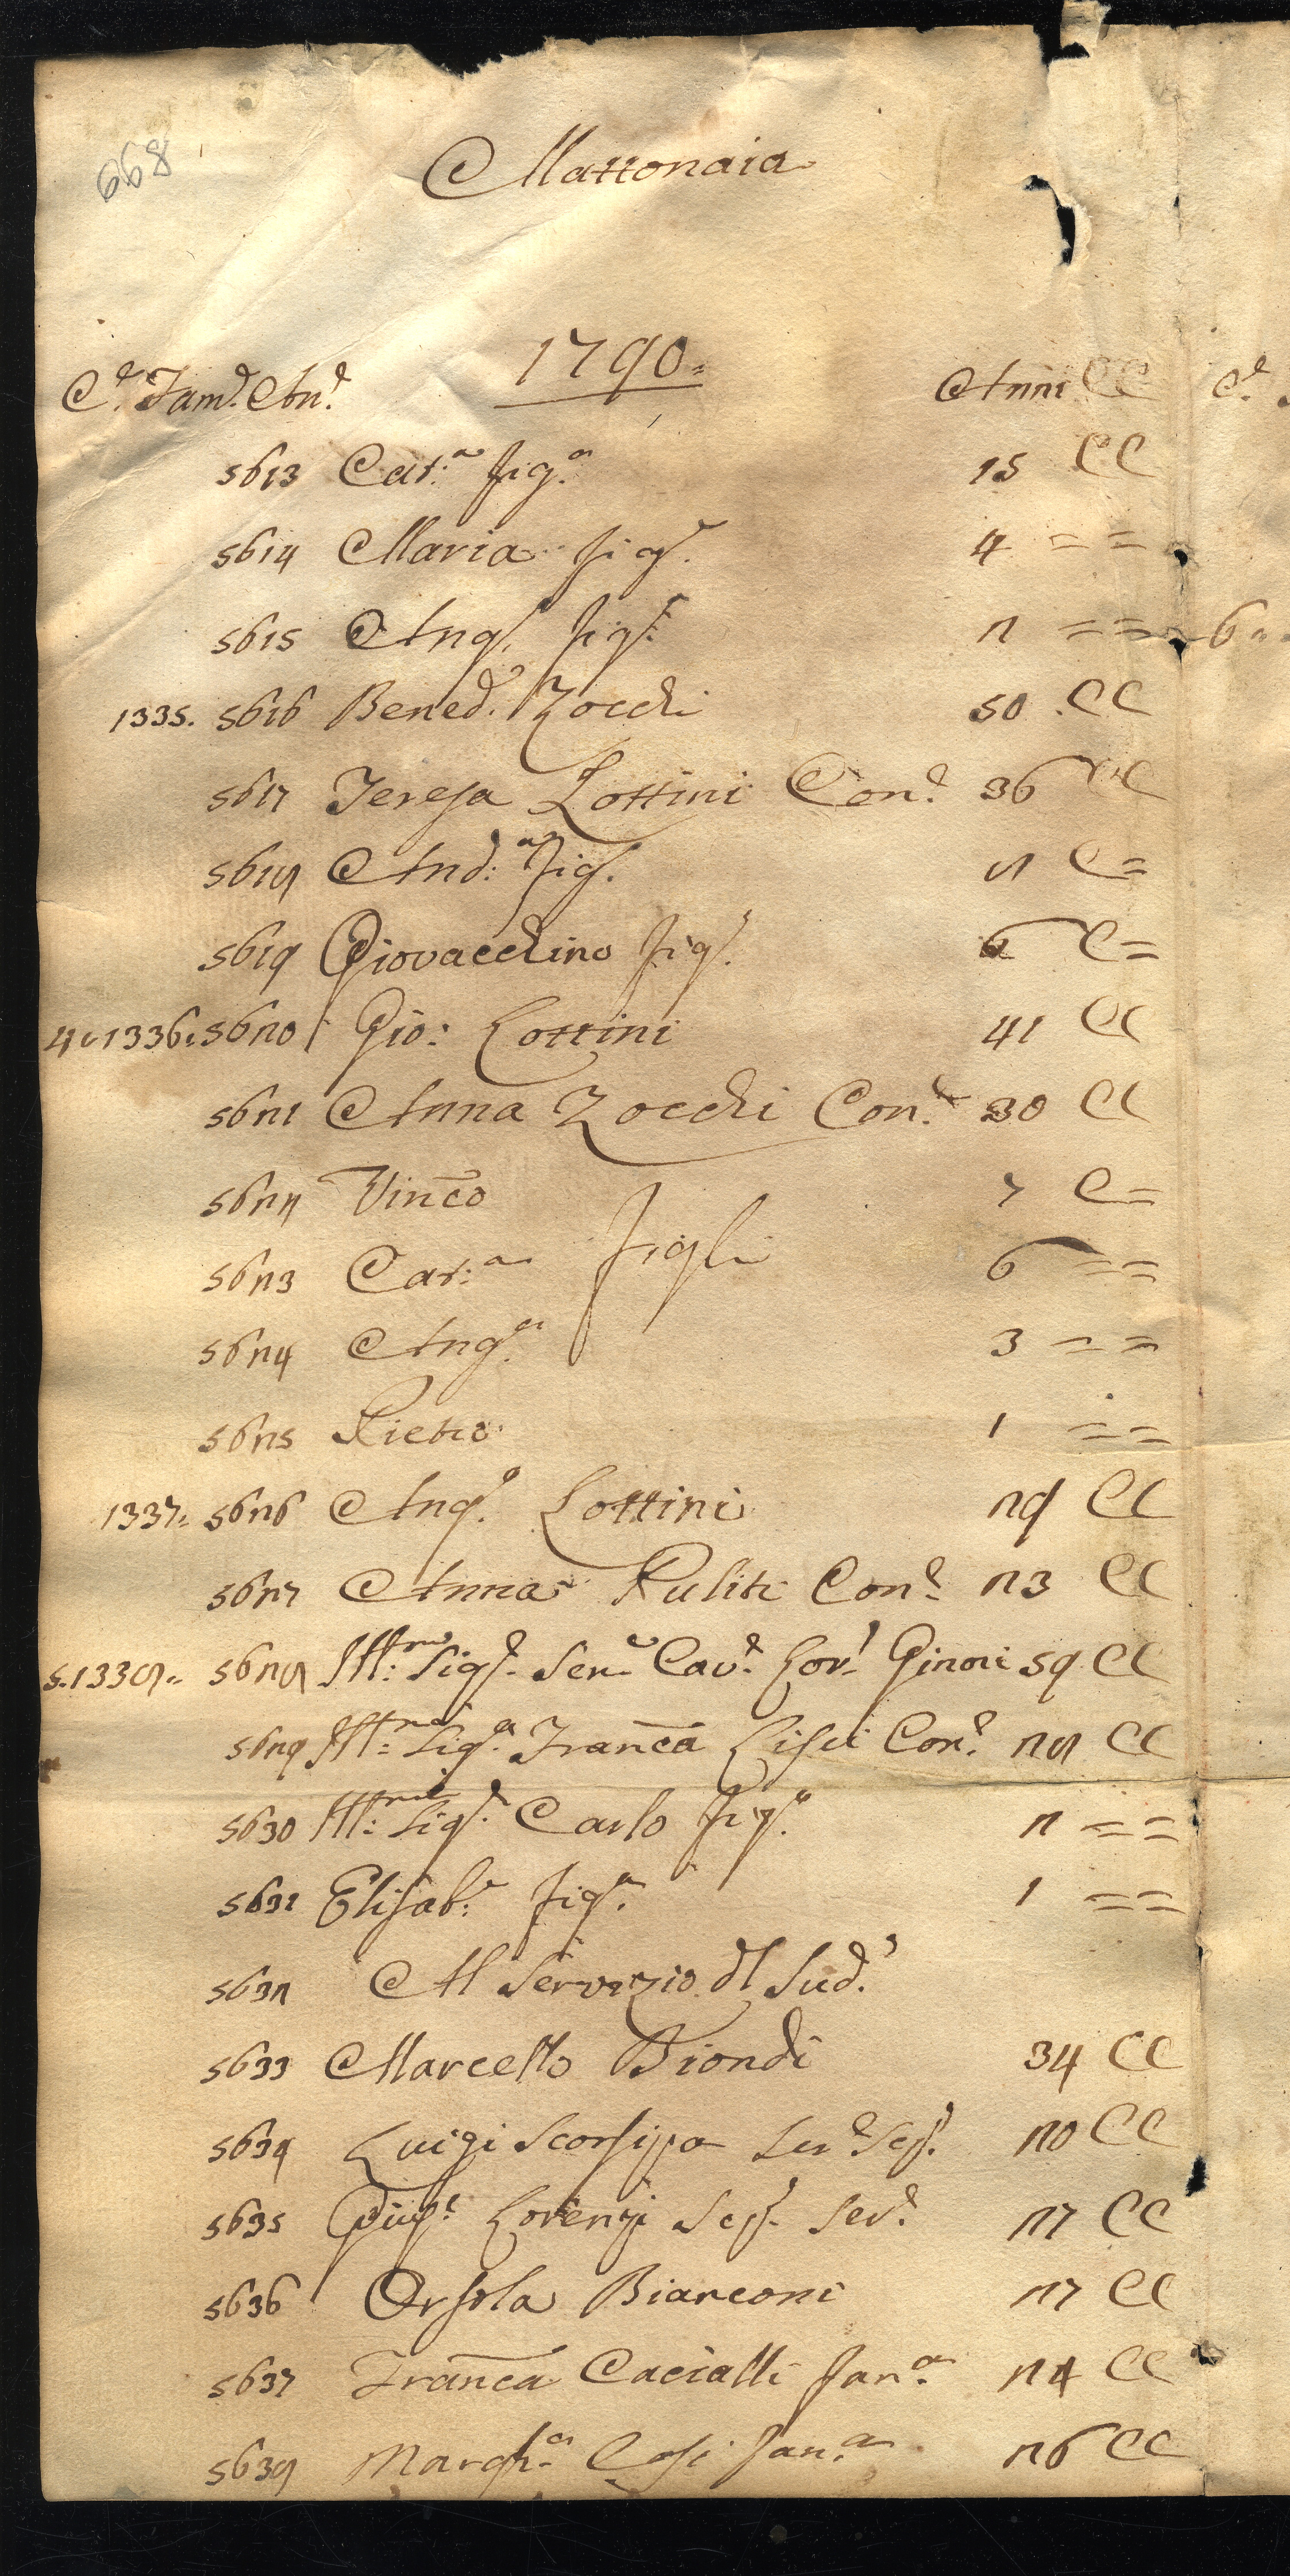 668
Mattonaia
1790=
C.e Fam.e An.e Anni CC C.e
5613 Cat.a fig.a 15 CC
5614 Maria fig.a 4 = =
5615 Ang. fig. 2 = = 6
1335. 5616 Bened.o Zocchi 50 CC
5617 Teresa Lottini Con.e 36 CC
5618 And.a fig. 8 C=
5619 Giovacchino fig. 6 C=
4. 1336. 5620 Gio: Lottini 41 CC
5621 Anna Zocchi Con.e 30 CC
5622 Vinco 7 C=
5623 Cat:a figli 6 = =
5624 Ang.a 3 = =
5625 Pietro 1 = =
1337. 5626 Ang.o Lottini 29 CC
5627 Anna Puliti Con.e 23 CC
5. 1338. 5628 Ill:mo Sig.e Sen.e Cav.e Lor. Ginori 59 CC
5629 Ill:ma Sig.a Franca Lisci Con.e 28 CC
5630 Ill:mo Sig.e Carlo fig.o 2 = =
5631 Elisab: fig.a 1 = =
5632 Al Servizio dl Sud.o
5633 Marcello Biondi 34 CC
5634 Luigi Scorsipa Ser.e 20 CC
5635 Giuse Lorenzi Ser.e 27 CC
5636 Orsola Bianconi 27 CC
5637 Franca Cacialli fan.a 24 CC
5638 Margh.a fan.a 26 CC